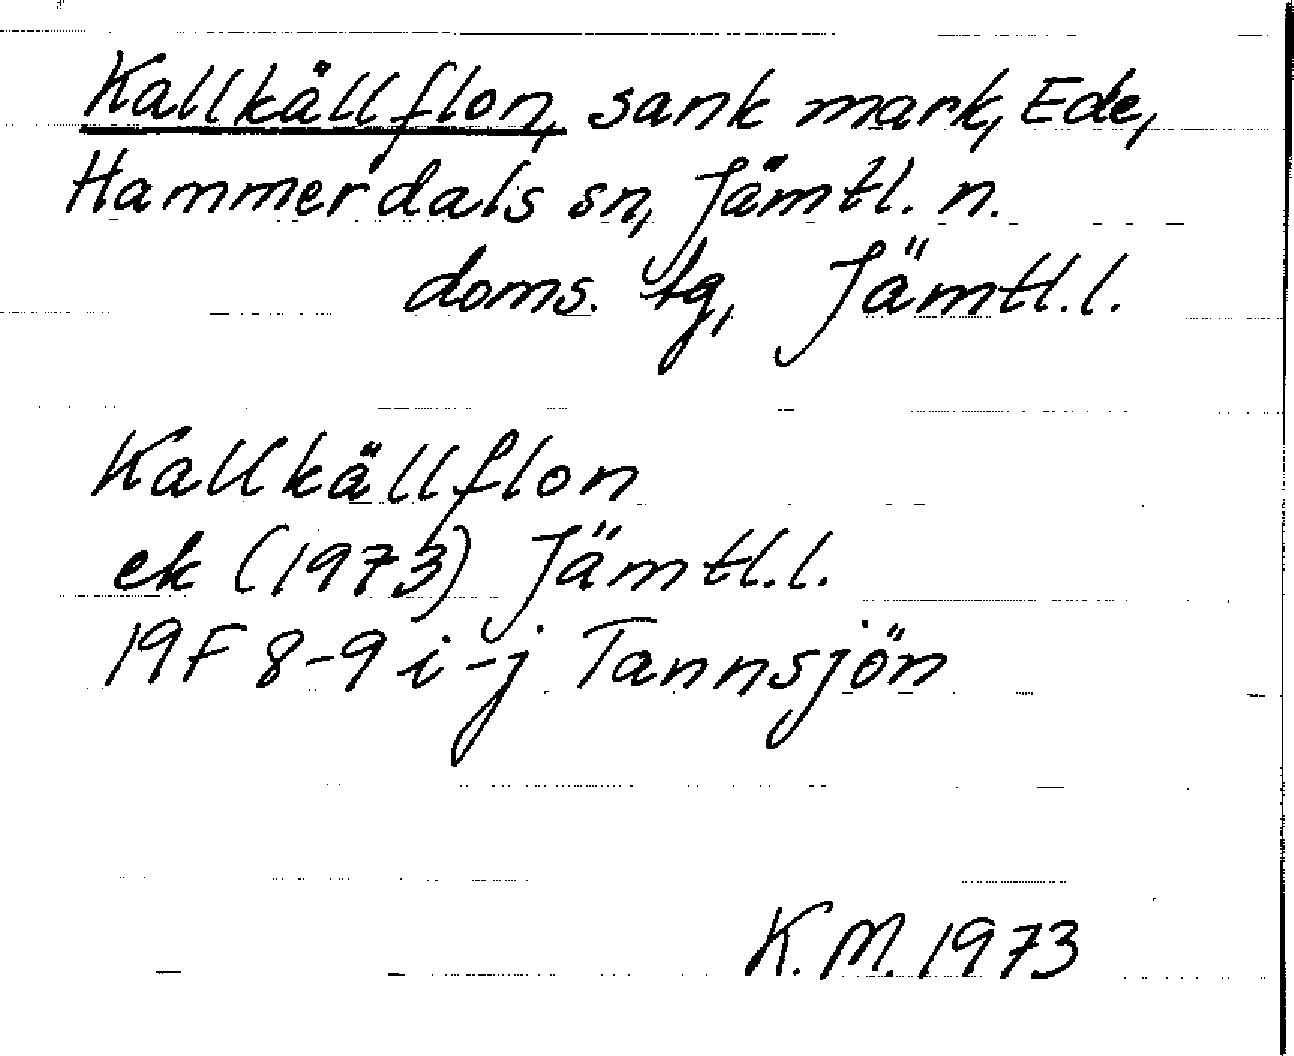 Kallkällflon, sank mark, Ede,
Hammerdals sn, Jämtl. n.
doms. tg, Jämtl. l.
Kallkällflon
ek (1973) Jämtl. l.
19F 8-9 i-j Tannsjön
K. M. 1973